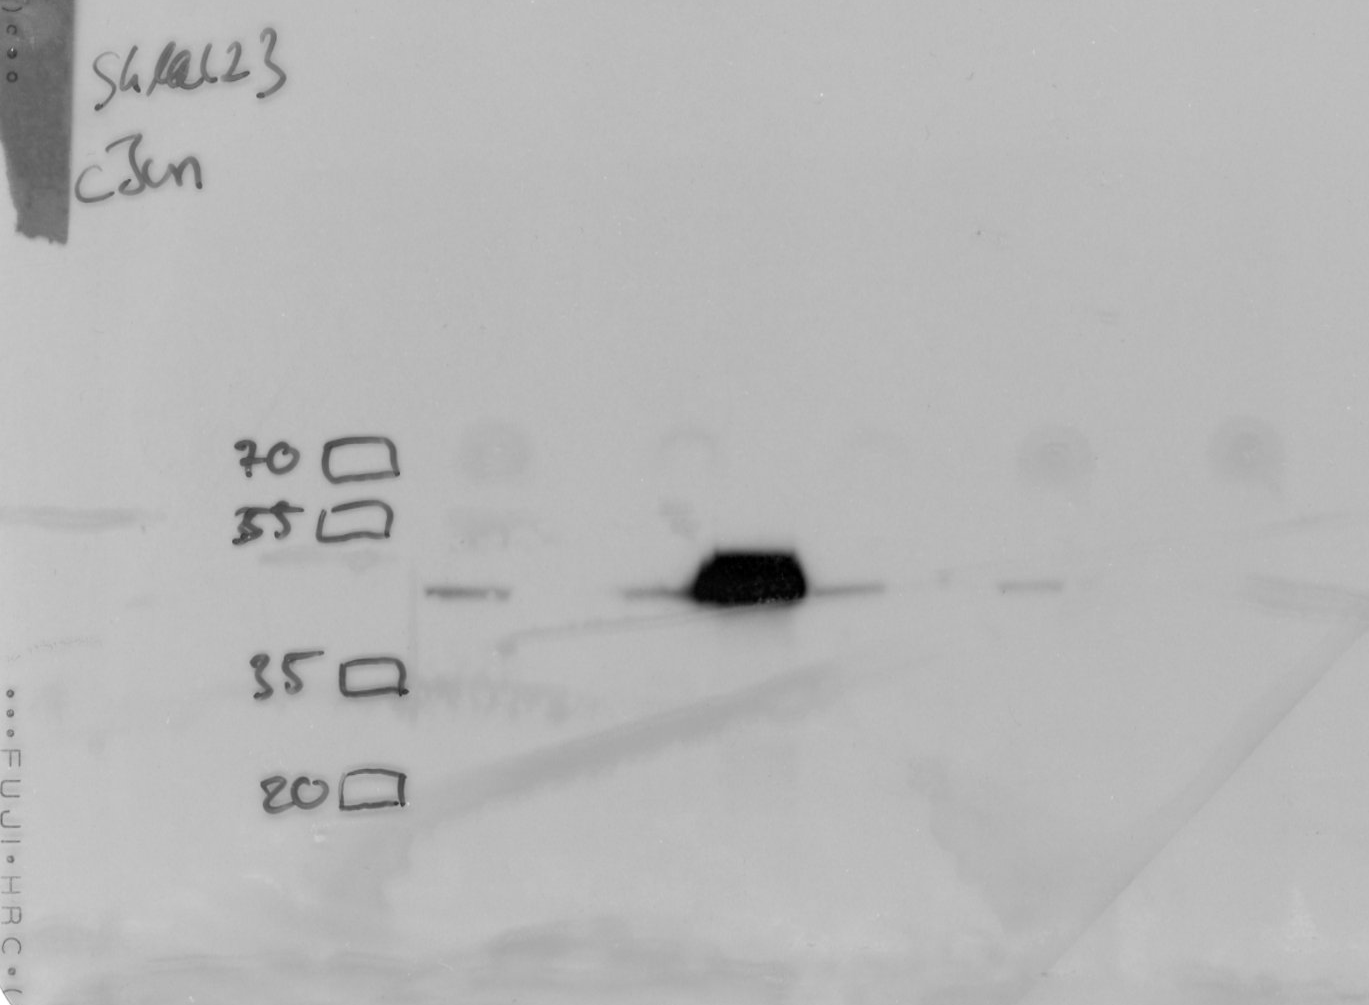 cJun
70
55
35
20
FUJI•HRC